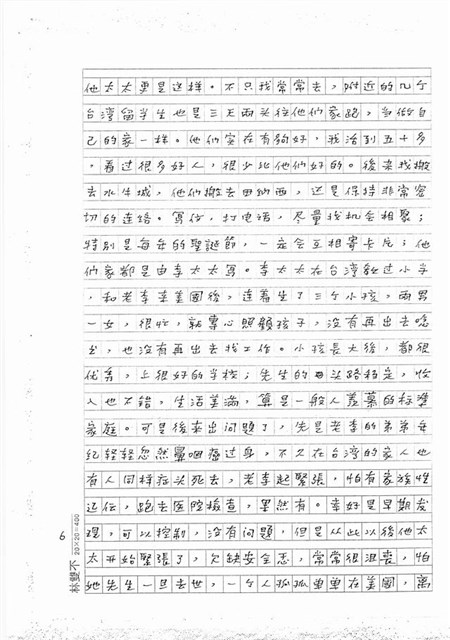 他太太更是这样。不只我常常去,附近的几个
台湾留学生也是三天两头往他们家跑,当做自
己的家一样。他们实在有夠好,我活到五十多
,看过很多好人,很少比他们好的。後来我搬
去水牛城,他们搬去田纳西,还是保持非常密
切的连络。写信,打电话,尽量找机会相聚;
特别是每年的聖誕節,一定会互相寄卡片;他
们家都是由李太太写。李太太在台湾教过小学
,和老李来美國後,连着生了三个小孩,兩男
一女,很忙,就專心照顧孩子,没有再出去唸
书,也没有再出去找工作。小孩長大後,都很
优秀,上很好的学校;先生的头路稳定,收
入也不错,生活美满,算是一般人羡慕的标準
家庭。可是後来出问题了,先是老李的弟弟年
纪轻轻忽然鼻咽癌过身,不久在台湾的家人也
有人同样症头死去,老李起緊張,怕有家族性
遗传,跑去医院檢查,果然有。幸好是早期发
现,可以控制,没有问题,但是从此以後他太
太开始緊張了,欠缺安全感,常常很沮喪,怕
她先生一旦去世,一个人孤孤單單在美國,离
6
林雙不 20×20=400